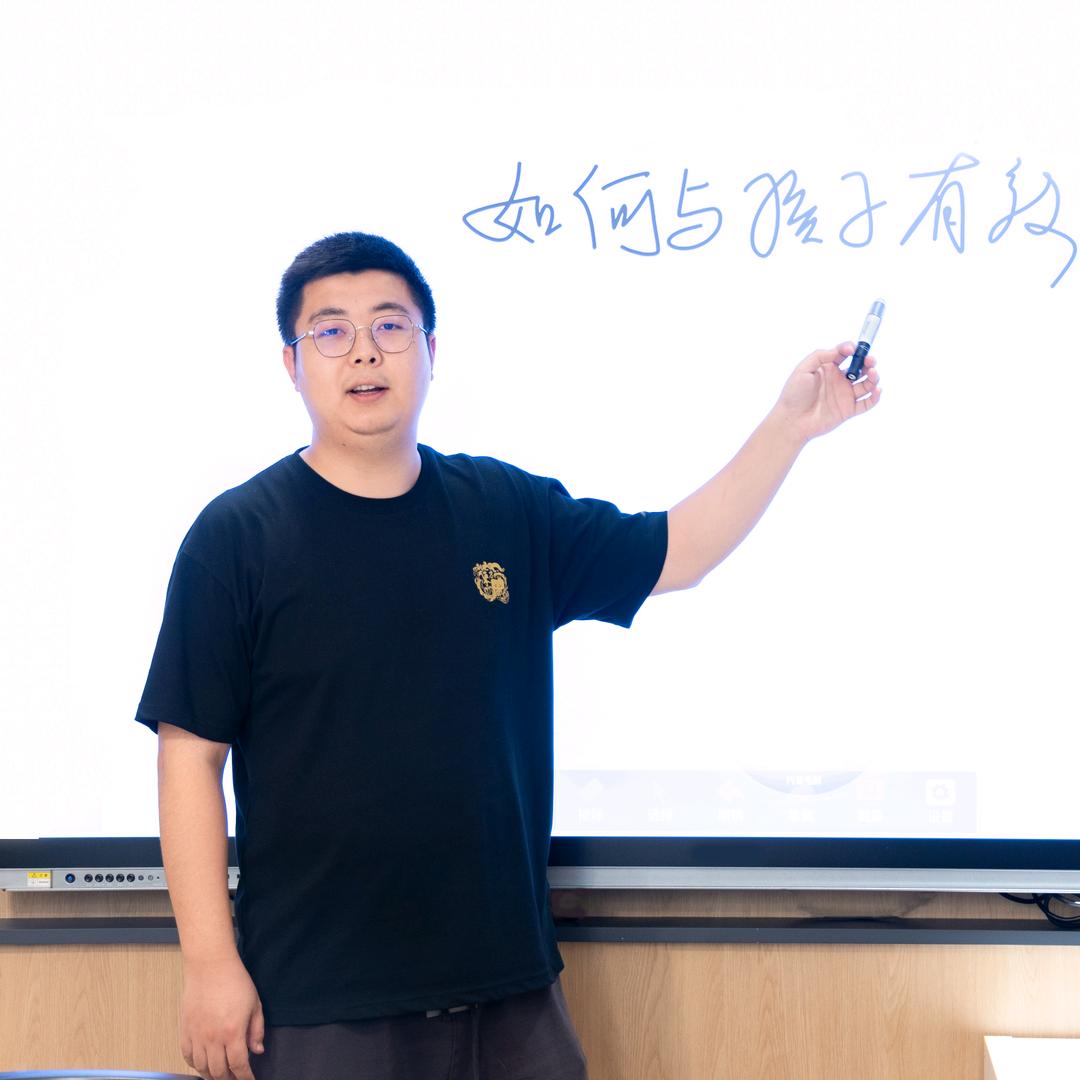 如何与孩子有效